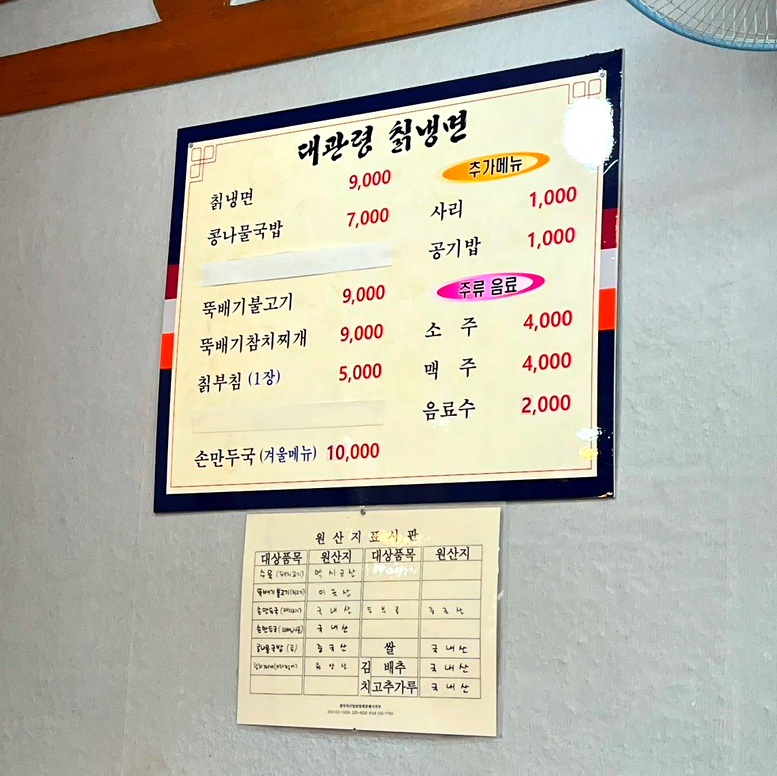 대관령 칡냉면
칡냉면 9,000
콩나물국밥 7,000
뚝배기불고기 9,000
뚝배기참치찌개 9,000
칡부침 (1장) 5,000
손만두국 (겨울메뉴) 10,000
추가메뉴
사리 1,000
공기밥 1,000
주류 음료
소 주 4,000
맥 주 4,000
음료수 2,000
원산지표시판
대상품목 원산지 대상품목 원산지
수육 (돼지고기) 멕시코산
뚝배기불고기 미국산
손만두국 (돼지고기) 국내산 두부류 중국산
손만두국 국내산
콩나물국밥 (콩) 중국산 쌀 국내산
원양산 김치 배추 국내산
고추가루 국내산